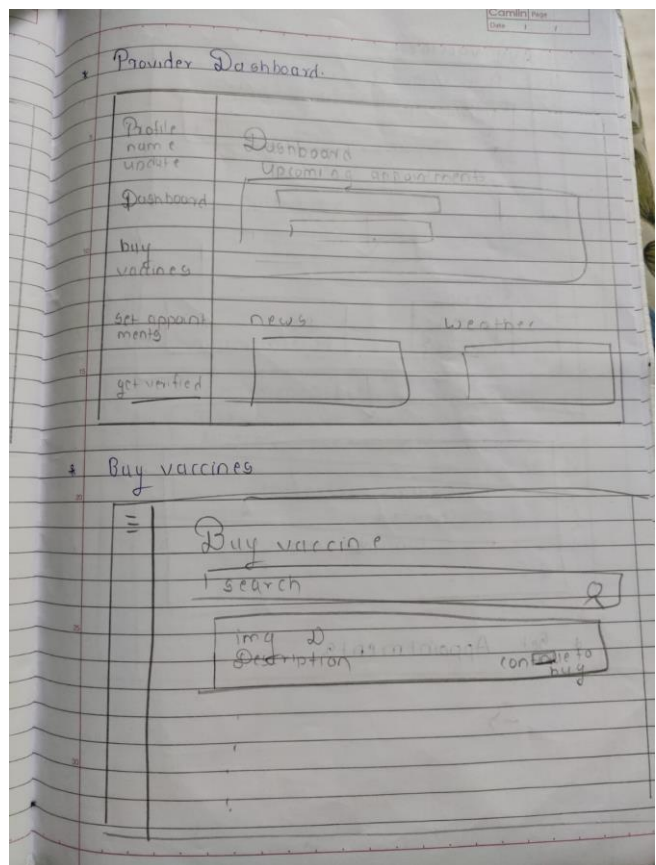 Camlin Page
Date / /
Provider Dashboard.
Profile
name
update
Dashboard
buy
vaccines
set appoint
ments
get verified
Dashboard
Upcoming appointments
news
weather
Buy vaccines
Buy vaccine
search
img D
Description
to
buy